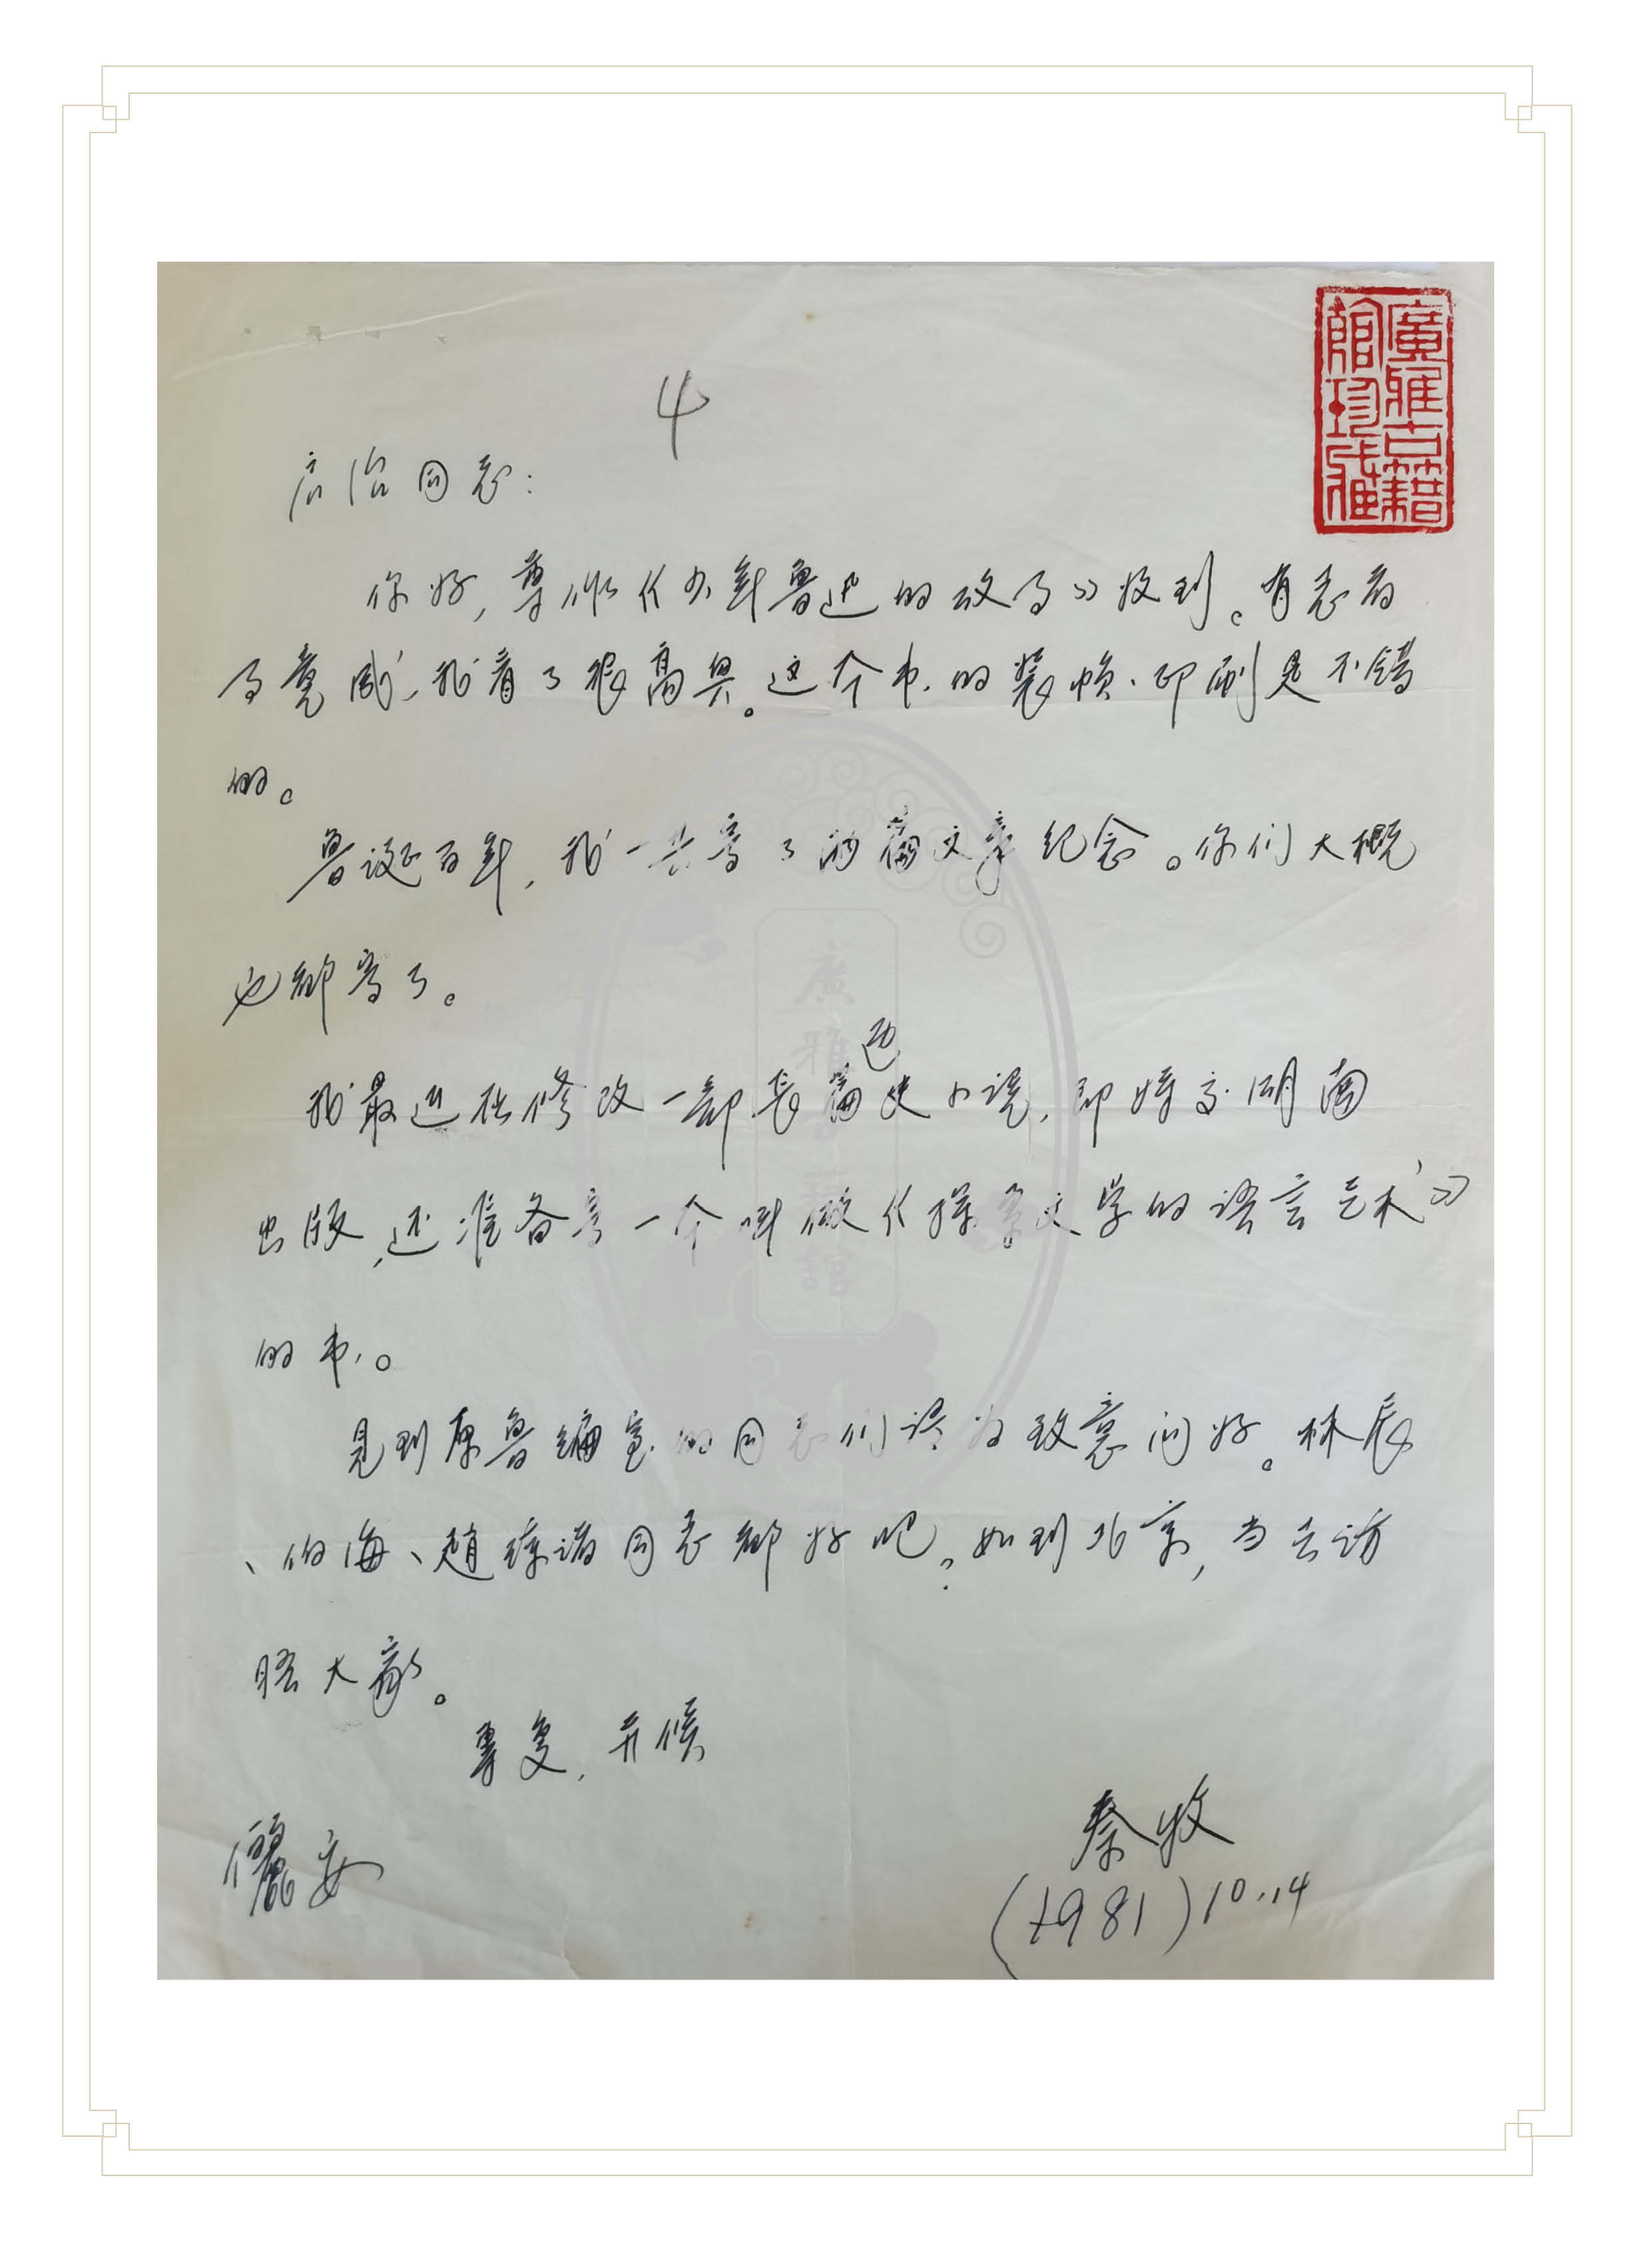 廣雅古籍
館珍藏
4
启治同志：
你好，尊作《少年鲁迅的故事》收到。有志者
事竟成，我看了很高兴。这个书的装帧、印刷是不错
的。
鲁诞百年，我一共写了两篇文章纪念。你们大概
也都写了。
我最近在修改一部长篇历史小说，即将交湖南
出版，还准备写一个叫做《探索文学的语言艺术》
的书。
见到原鲁编室的同志们请为致意问好。林辰
、伯海、赵琼诸同志都好吧？如到北京，当去访
晤大家。
专复，并候
俪安
秦牧
(1981)10.14
廣雅古籍館